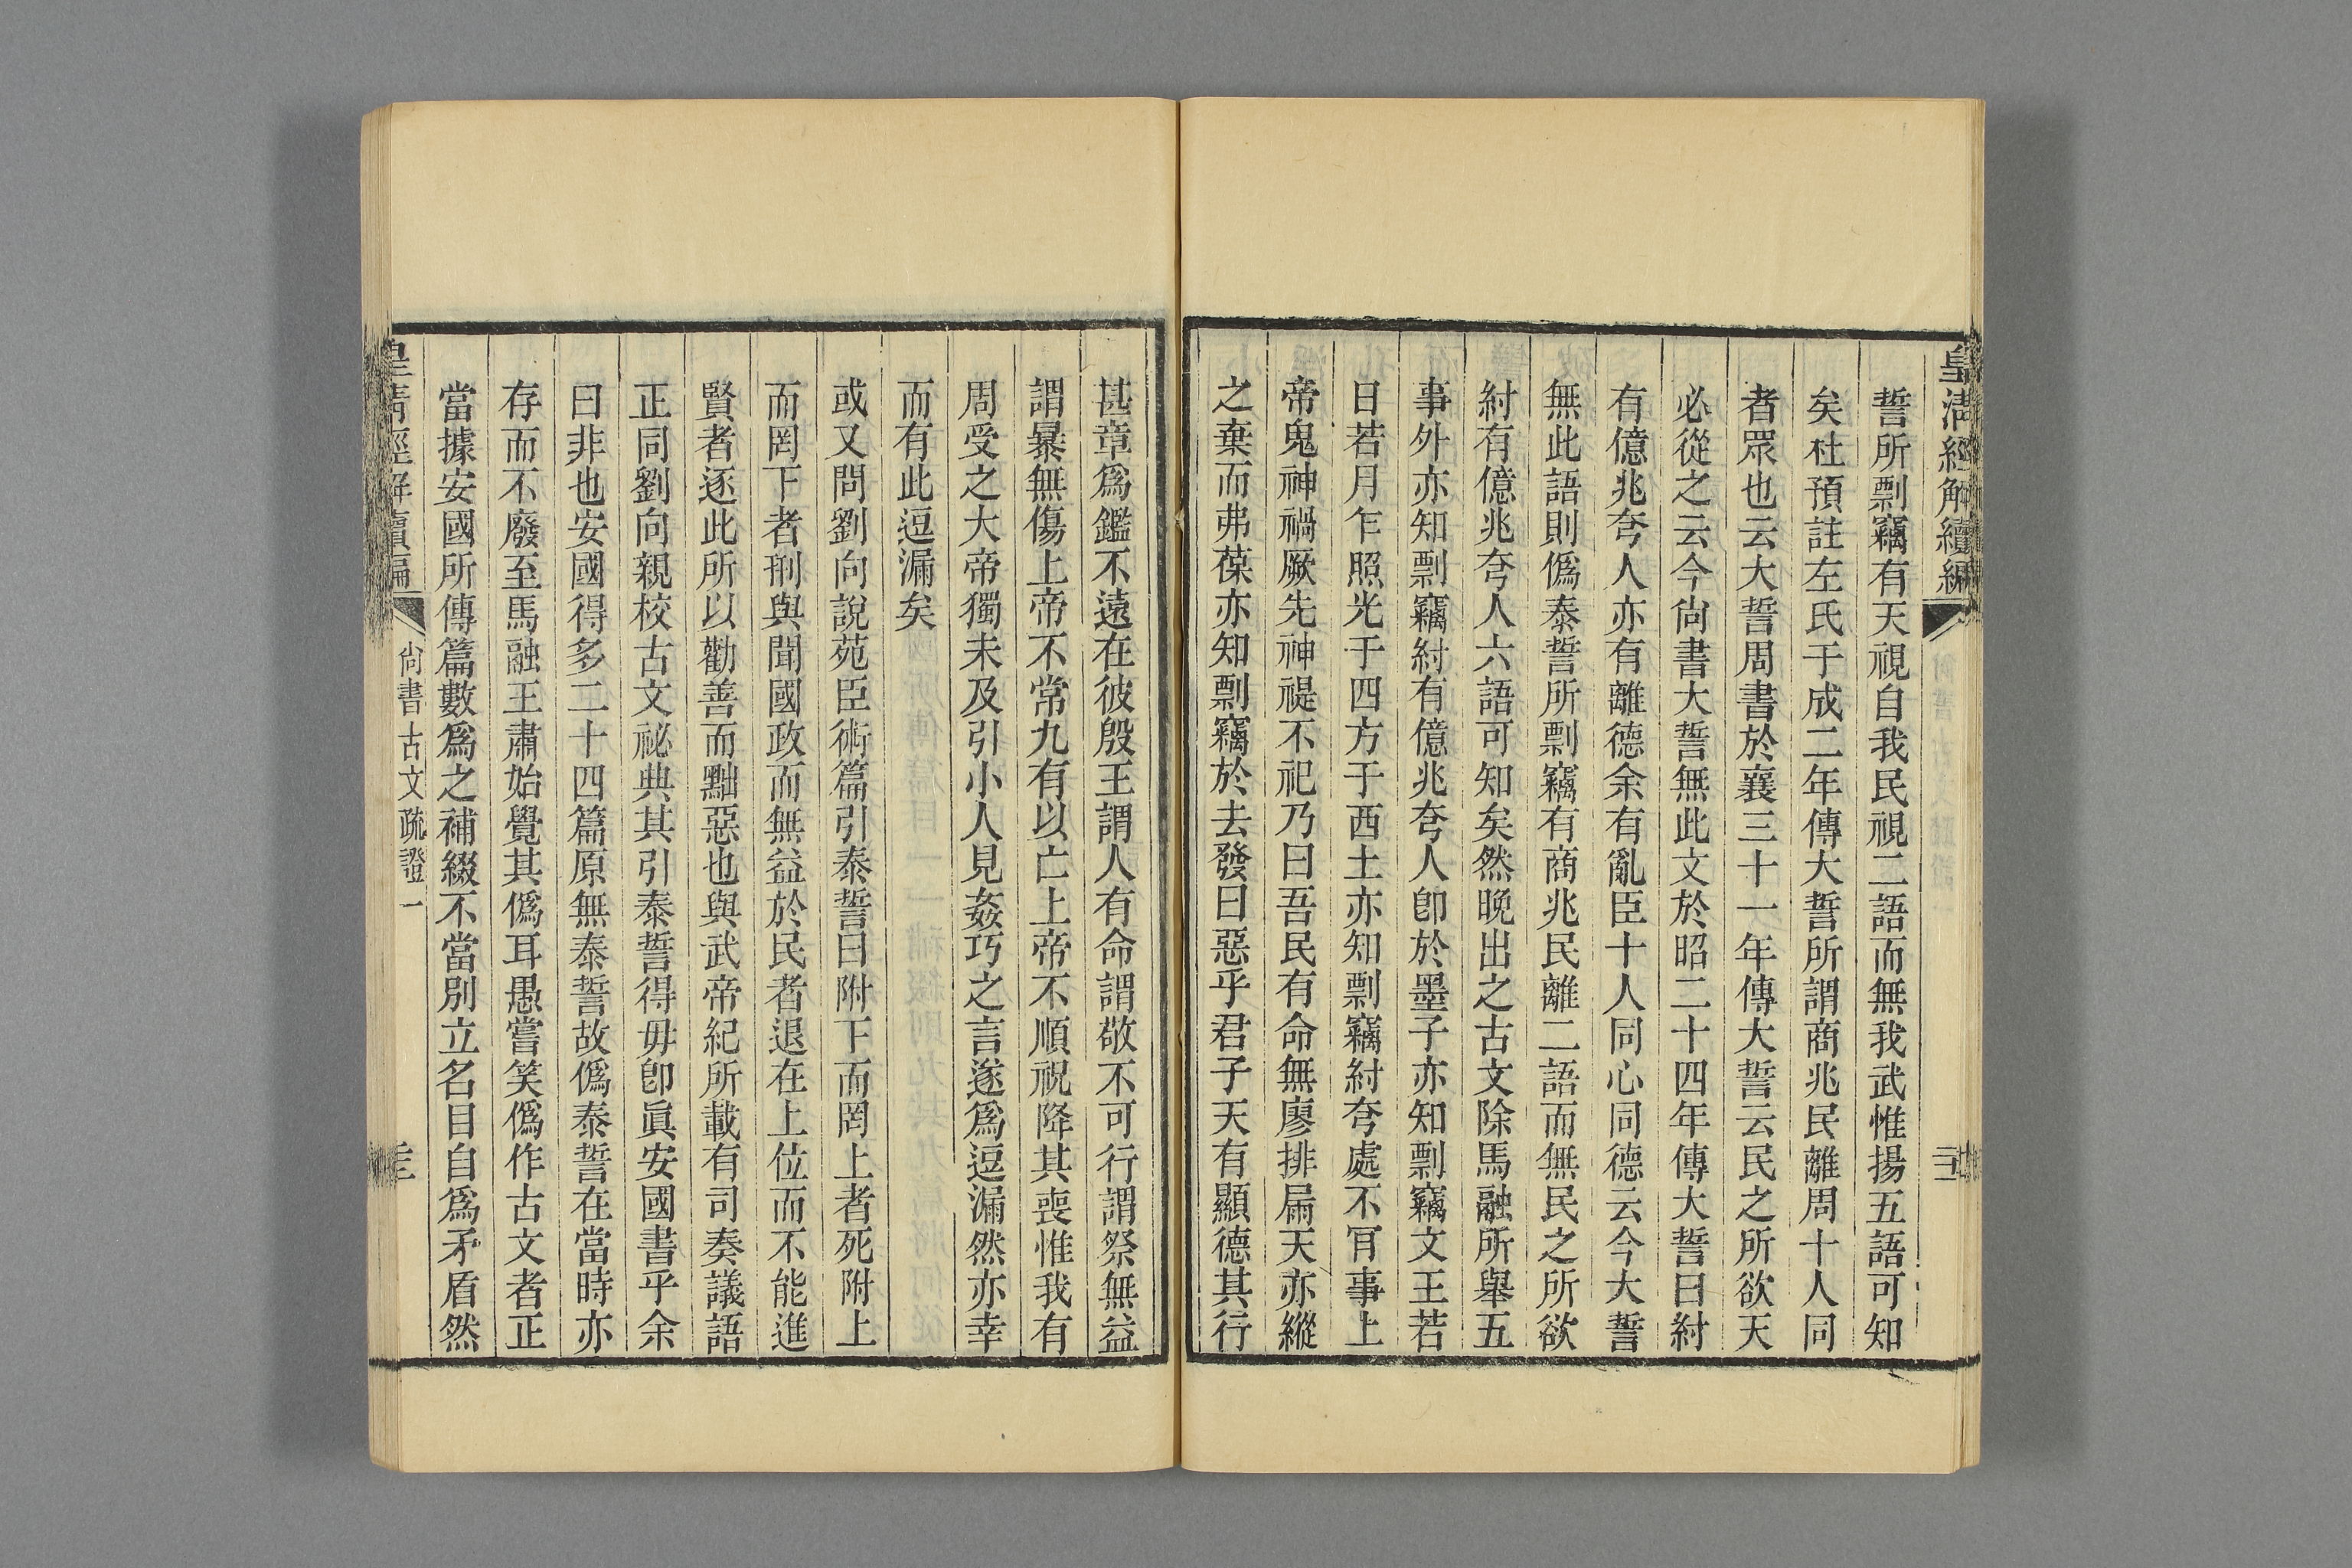 皇清經解續編
誓所剽竊有天視自我民視二語而無我武惟揚五語可知
矣杜預註左氏于成二年傳大誓所謂商兆民離周十人同
者眾也云大誓周書於襄三十一年傳大誓云民之所欲天
必從之云今尙書大誓無此文於昭二十四年傳大誓曰紂
有億兆夸人亦有離德余有亂臣十人同心同德云今大誓
無此語則僞泰誓所剽竊有商兆民離二語而無民之所欲
紂有億兆夸人六語可知矣然晚出之古文除馬融所舉五
事外亦知剽竊紂有億兆夸人卽於墨子亦知剽竊文王若
日若月乍照光于四方于西土亦知剽竊紂夸處不肎事上
帝鬼神禍厥先神禔不祀乃曰吾民有命無廖排屚天亦縱
之棄而弗葆亦知剽竊於去發曰惡乎君子天有顯德其行
甚章爲鑑不遠在彼殷王謂人有命謂敬不可行謂祭無益
謂暴無傷上帝不常九有以亡上帝不順祝降其喪惟我有
周受之大帝獨未及引小人見姦巧之言遂爲逗漏然亦幸
而有此逗漏矣
或又問劉向說苑臣術篇引泰誓曰附下而罔上者死附上
而罔下者刑與聞國政而無益於民者退在上位而不能進
賢者逐此所以勸善而黜惡也與武帝紀所載有司奏議語
正同劉向親校古文祕典其引泰誓得毋卽眞安國書乎余
曰非也安國得多二十四篇原無泰誓故僞泰誓在當時亦
存而不廢至馬融王肅始覺其僞耳愚嘗笑僞作古文者正
當據安國所傳篇數爲之補綴不當別立名目自爲矛盾然
皇清經解續編
尙書古文疏證一